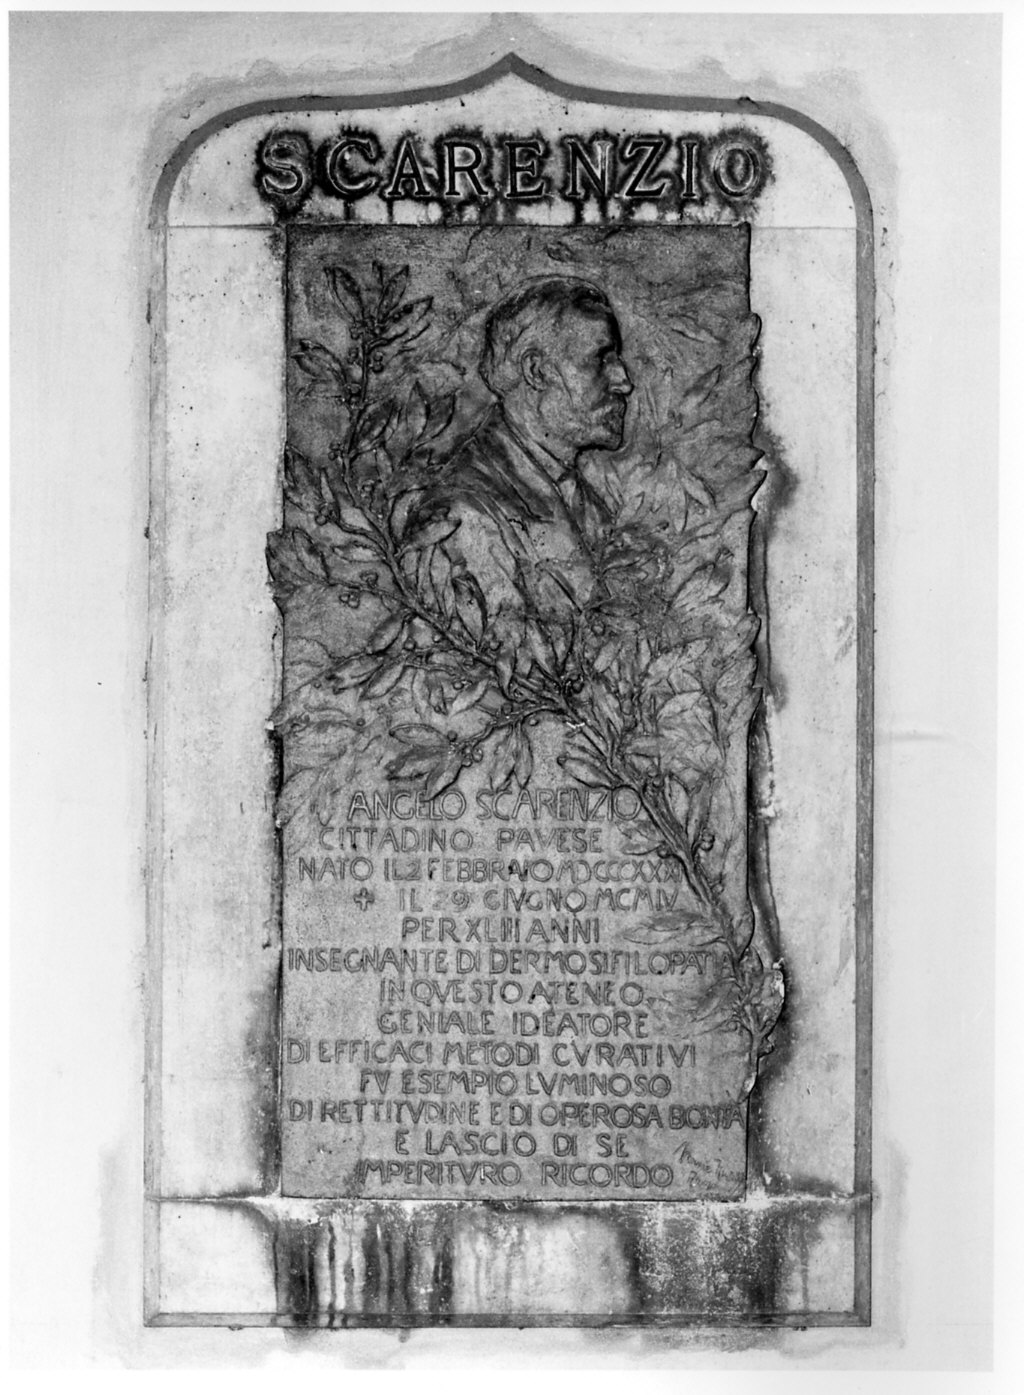 SCARENZIO
ANGELO SCARENZIO
CITTADINO PAVESE
NATO IL 2 FEBBRAIO MDCCCXXXI
+ IL 29 GIVGNO MCMIV
PER XLIII ANNI
INSEGNANTE DI DERMOSIFILOPATIA
IN QVESTO ATENEO.
GENIALE IDEATORE
DI EFFICACI METODI CVRATIVI
FV ESEMPIO LVMINOSO
DI RETTITVDINE E DI OPEROSA BONTA
E LASCIO DI SE
IMPERITVRO RICORDO